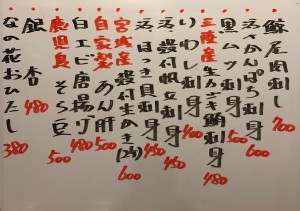 鯨尾肉刺 700
活〆かんぱち刺 600
黒ムツ刺身 500
三陸産生めじ鮪刺身 480
いわし刺身 400
活殻付帆立刺身 450
活ほっき貝刺身 450
宮城産殻付生かき(2ヶ) 600
自家製あん肝 500
白エビ唐揚げ 480
鹿児島産そら豆 500
銀杏 480
なの花おひたし 380